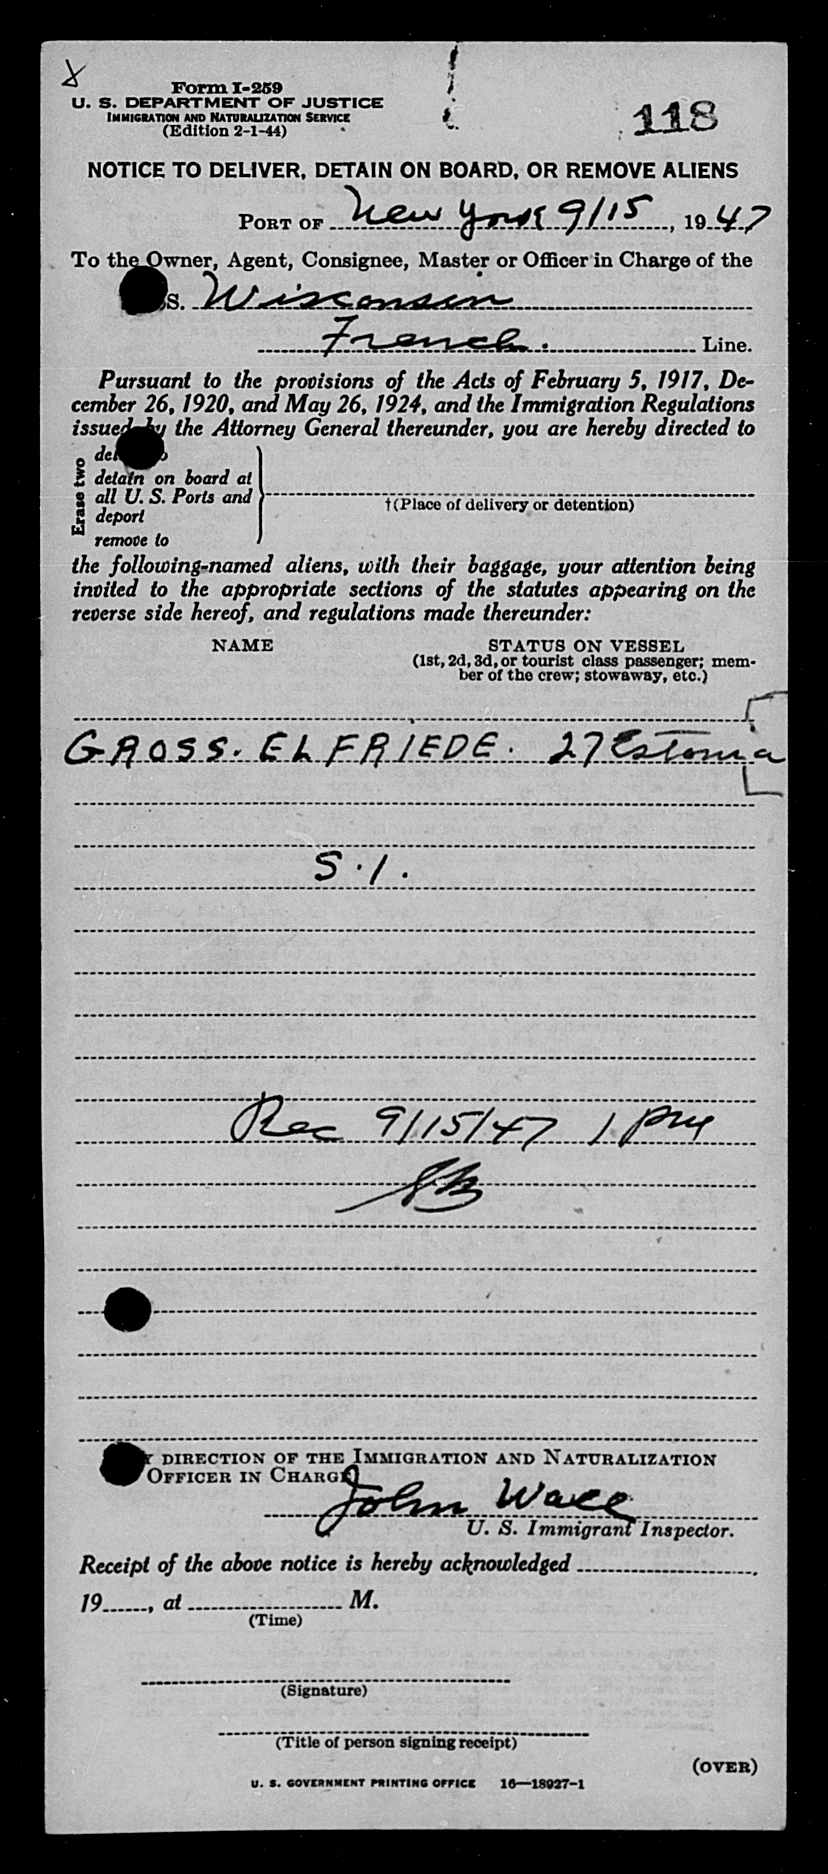 Form I-259
U. S. DEPARTMENT OF JUSTICE
IMMIGRATION AND NATURALIZATION SERVICE
(Edition 2-1-44)
118
NOTICE TO DELIVER, DETAIN ON BOARD, OR REMOVE ALIENS
PORT OF New York 9/15, 1947
To the Owner, Agent, Consignee, Master or Officer in Charge of the
S. Wisconsin
French. Line.
Pursuant to the provisions of the Acts of February 5, 1917, De-
cember 26, 1920, and May 26, 1924, and the Immigration Regulations
issued by the Attorney General thereunder, you are hereby directed to
Erase two
detain on board at
all U. S. Ports and
deport
remove to
†(Place of delivery or detention)
the following-named aliens, with their baggage, your attention being
invited to the appropriate sections of the statutes appearing on the
reverse side hereof, and regulations made thereunder:
NAME STATUS ON VESSEL
(1st, 2d, 3d, or tourist class passenger; mem-
ber of the crew; stowaway, etc.)
GROSS. ELFRIEDE. 27 Estonia
S.I.
Rec 9/15/47 1 PM
DIRECTION OF THE IMMIGRATION AND NATURALIZATION
OFFICER IN CHARGE
John Wall
U. S. Immigrant Inspector.
Receipt of the above notice is hereby acknowledged
19, at M.
(Time)
(Signature)
(Title of person signing receipt)
(OVER)
U. S. GOVERNMENT PRINTING OFFICE 16—18927-1